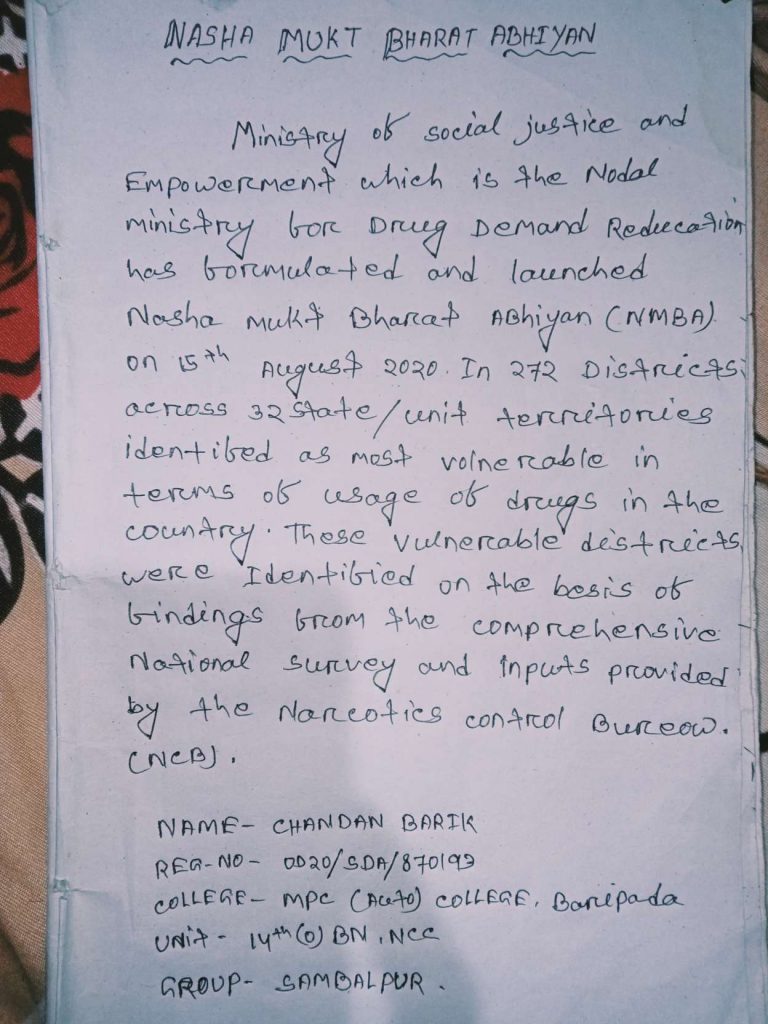 NASHA MUKT BHARAT ABHIYAN
Ministry of social justice and
Empowerment which is the Nodal
ministry for Drug Demand Reducation
has formulated and launched
Nasha mukt Bharat Abhiyan (NMBA)
on 15th August 2020. In 272 Districts
across 32 state/unit territories
identifed as most volnerable in
terms of usage of drugs in the
country. These vulnerable districts
were Identified on the besis of
findings from the comprehensive
National survey and inputs provided
by the Narcotics control Bureow.
(NCB).
NAME- CHANDAN BARIK
REG-NO- OD20/SDA/870193
COLLEGE- MPC (Auto) COLLEGE, Baripada
UNIT- 14th (O) BN, NCC
GROUP- SAMBALPUR.